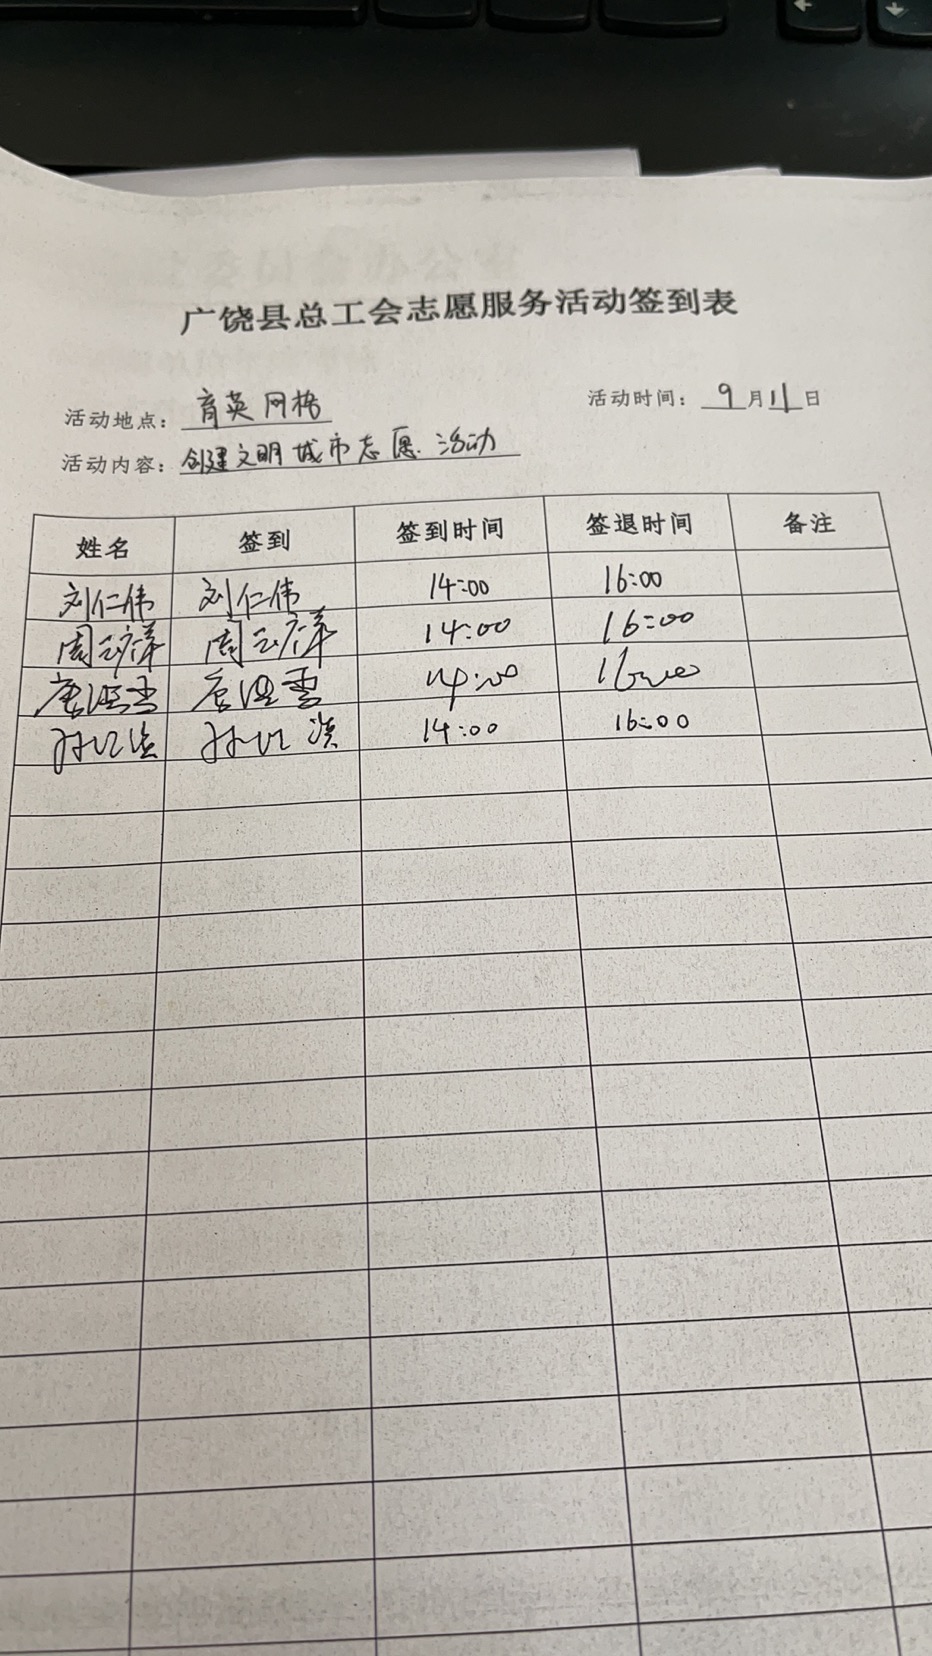 广饶县总工会志愿服务活动签到表
活动地点：育英网格 活动时间：9月11日
活动内容：创建文明城市志愿活动
姓名 签到 签到时间 签退时间 备注
刘仁伟 刘仁伟 14:00 16:00
周 周 14:00 16:00
唐 唐 雪 14:00 16:00
孙 孙 滨 14:00 16:00